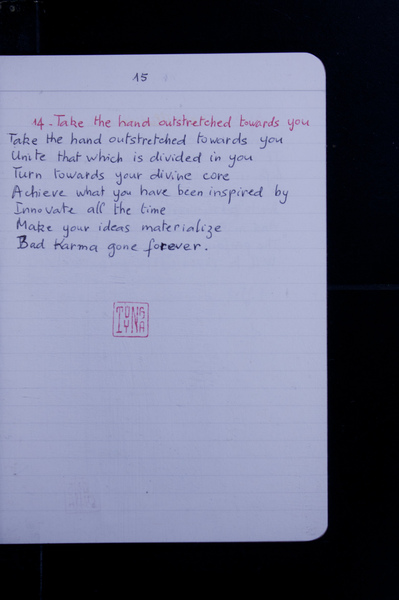 15
14-Take the hand outstretched towards you
Take the hand outstretched towards you
Unite that which is divided in you
Turn towards your divine core
Achieve what you have been inspired by
Innovate all the time
Make your ideas materialize
Bad Karma gone forever.
TONG
LYNA